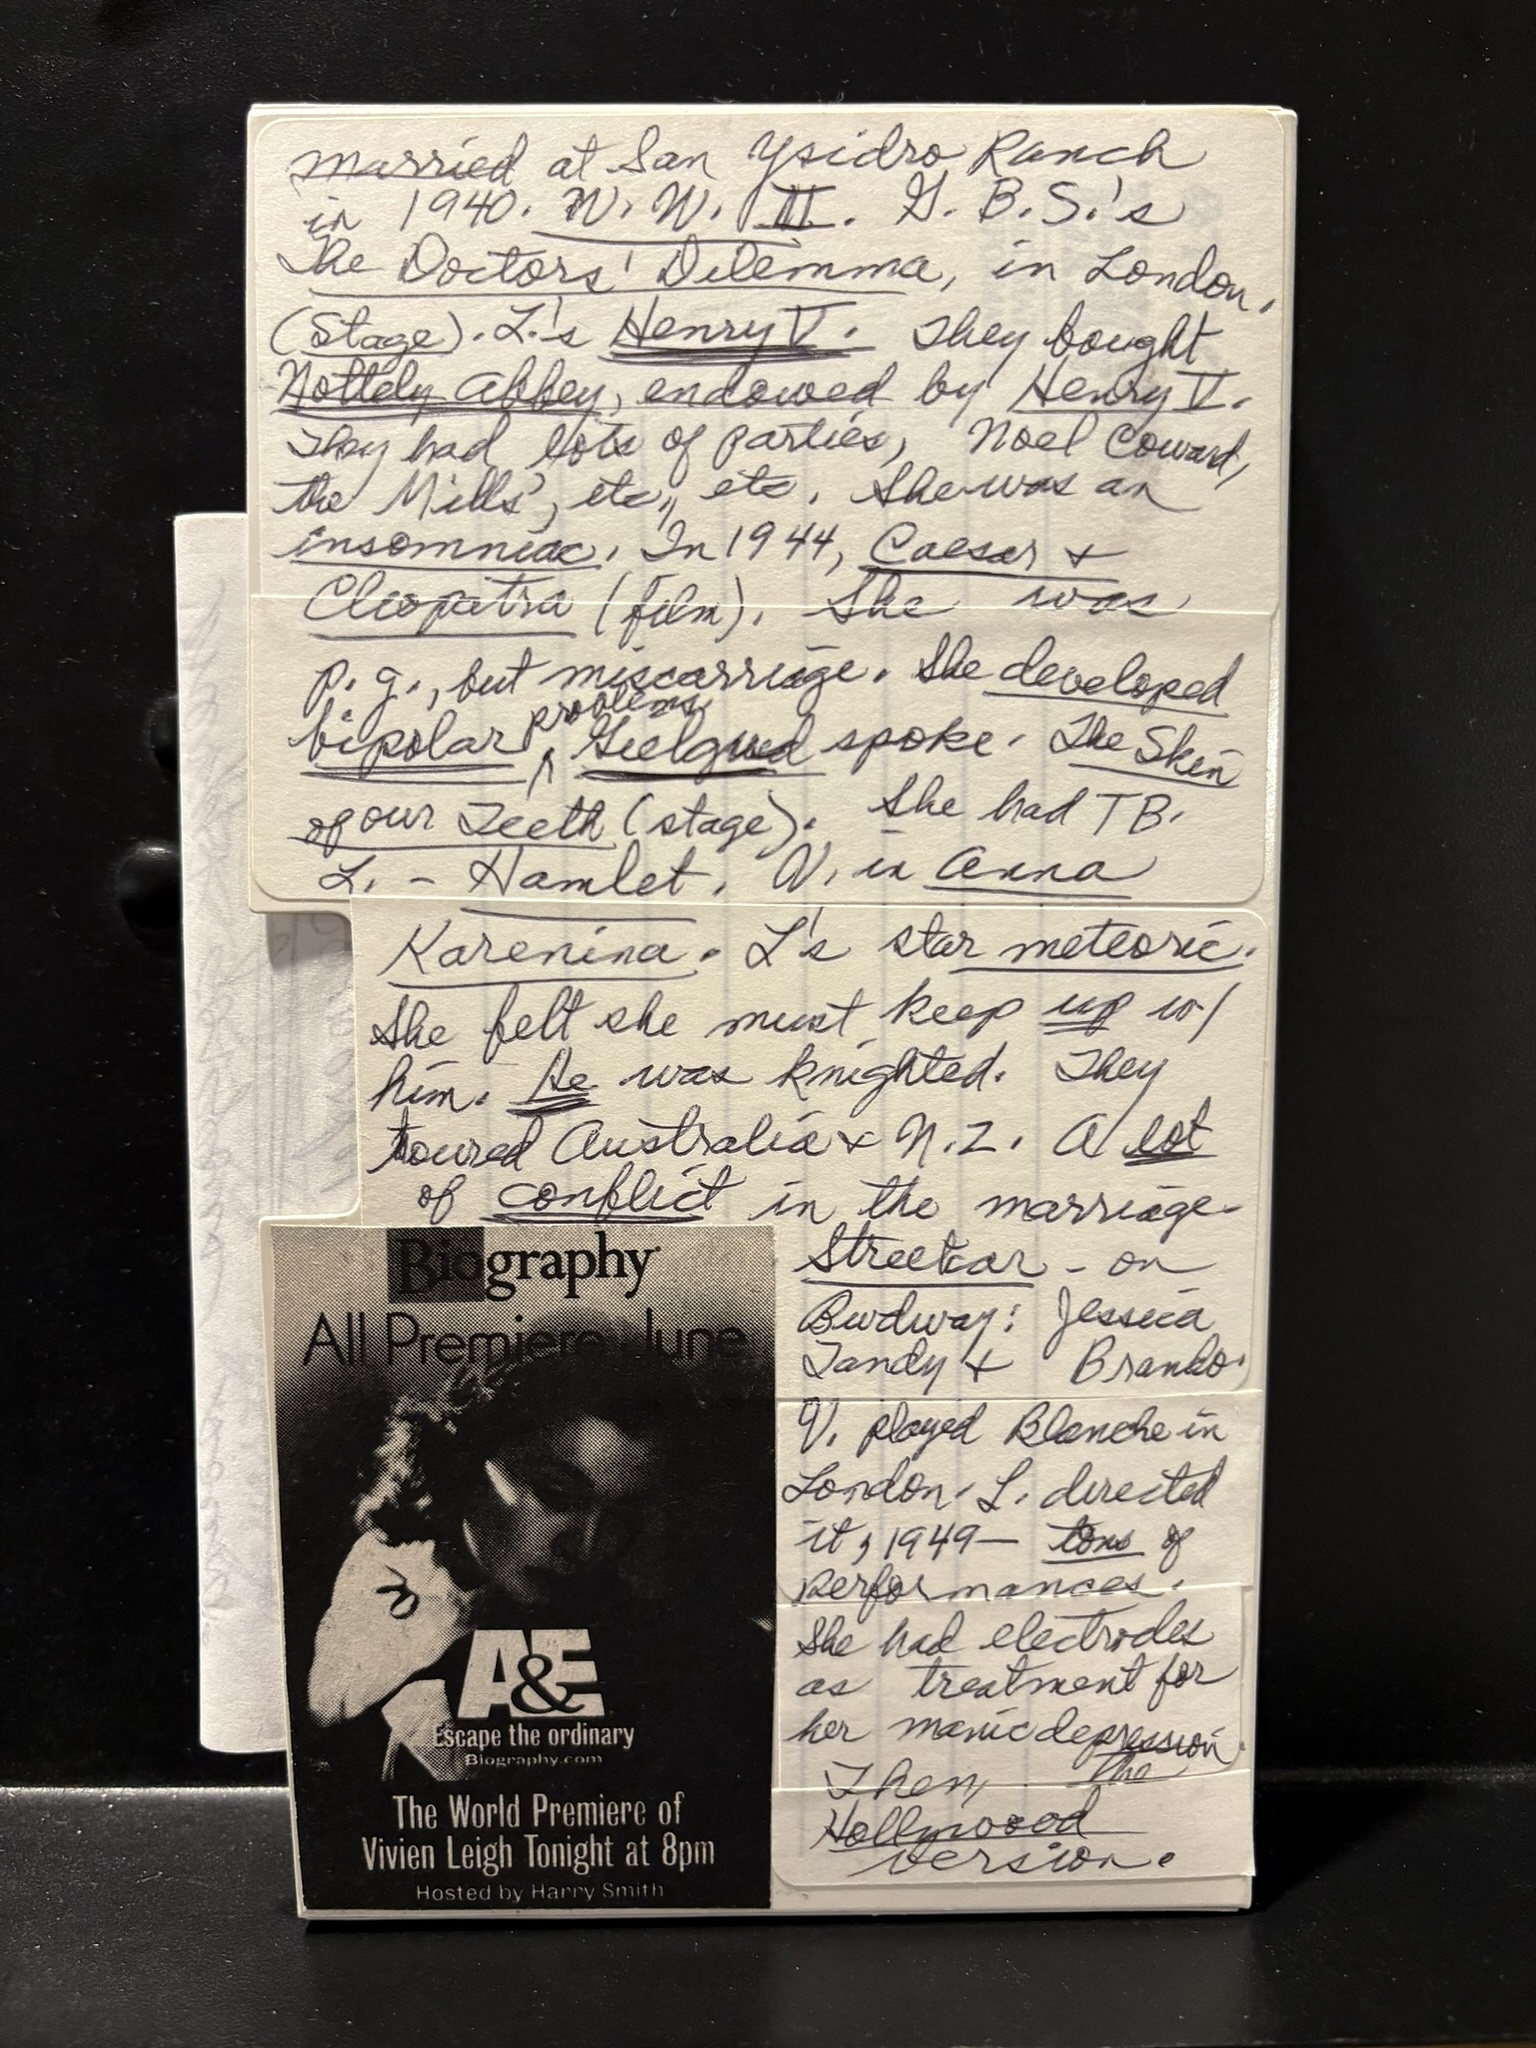 married at San Ysidro Ranch
in 1940. W. W. II. G. B. S.'s
The Doctors' Dilemma, in London.
(Stage). L.'s Henry V. They bought
Nottely Abbey, endowed by Henry V.
They had lots of parties, Noel Coward,
the Mills', etc., etc. She was an
insomniac. In 1944, Caesar +
Cleopatra (film). She was
p.g., but miscarriage. She developed
bipolar problems. Gielgud spoke. The Skin
of our Teeth (stage). She had TB.
L. - Hamlet. V. in Anna
Karenina. L's star meteoric.
She felt she must keep up w/
him. He was knighted. They
toured Australia + N.Z. A lot
of conflict in the marriage.
Streetcar - on
Budway: Jessica
Tandy + Brando.
V. played Blanche in
London. L. directed
it, 1949- tons of
performances.
She had electrodes
as treatment for
her manic depression.
Then, the
Hollywood
version.
Biography
All Premiere June
A&E
Escape the ordinary
Biography.com
The World Premiere of
Vivien Leigh Tonight at 8pm
Hosted by Harry Smith